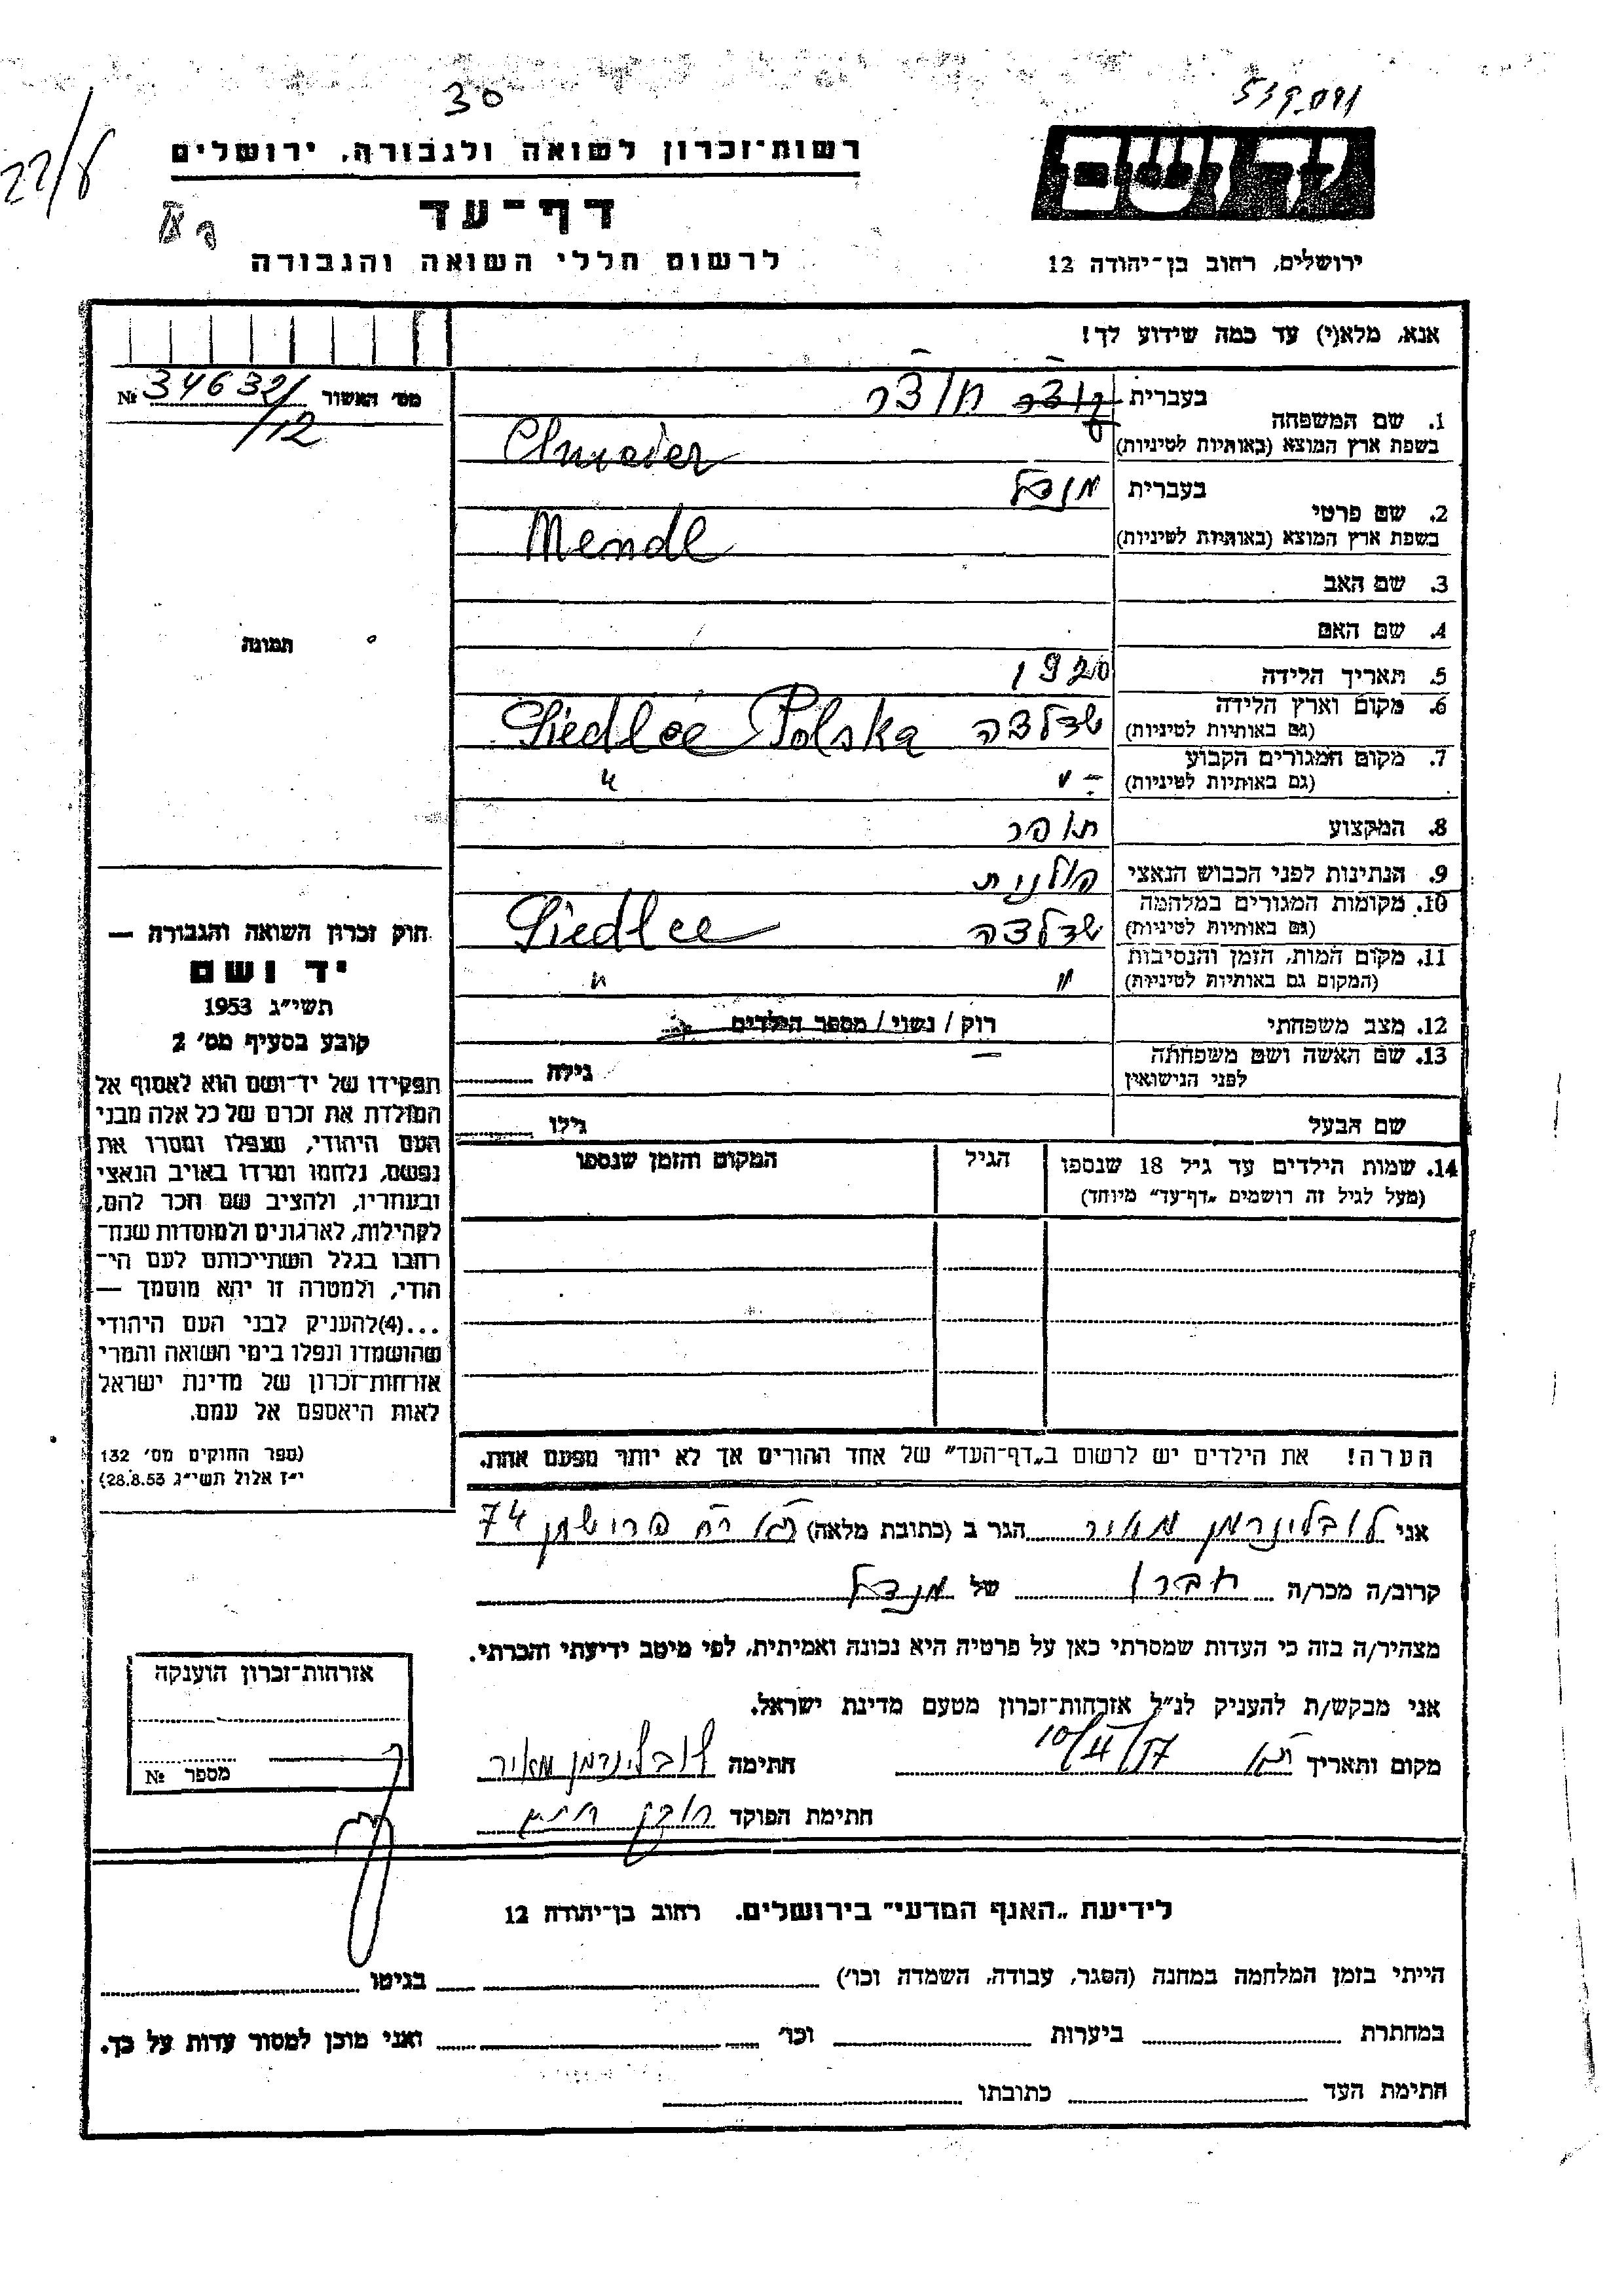 30
539091
22/8
רשות־זכרון לשואה ולגבורה, ירושלים
יד ושם
דף־עד
לרשום חללי השואה והגבורה
ירושלים, רחוב בן־יהודה 12
אנא, מלא(י) עד כמה שידוע לך!
מס׳ האשור № 34632/12
1. שם המשפחה בעברית חודר
בשפת ארץ המוצא (באותיות לטיניות)
2. שם פרטי בעברית מנדל
בשפת ארץ המוצא (באותיות לטיניות) Mendl
3. שם האב
4. שם האם
תמונה
5. תאריך הלידה 1920
6. מקום וארץ הלידה שדלצה Siedlce Polska
(גם באותיות לטיניות)
7. מקום המגורים הקבוע
(גם באותיות לטיניות) " "
8. המקצוע תופר
9. הנתינות לפני הכבוש הנאצי פולנית
10. מקומות המגורים במלחמה שדלצה Siedlce
(גם באותיות לטיניות)
11. מקום המות, הזמן והנסיבות
(המקום גם באותיות לטיניות) " "
12. מצב משפחתי רוק / נשוי / מספר הילדים
13. שם האשה ושם משפחתה
לפני הנישואין גילה
שם הבעל גילו
14. שמות הילדים עד גיל 18 שנספו הגיל המקום והזמן שנספו
(מעל לגיל זה רושמים „דף־עד" מיוחד)
חוק זכרון השואה והגבורה —
יד ושם
תשי״ג 1953
קובע בסעיף מס׳ 2
תפקידו של יד־ושם הוא לאסוף אל
המולדת את זכרם של כל אלה מבני
העם היהודי, שנפלו ומסרו את
נפשם, נלחמו ומרדו באויב הנאצי
ובעוזריו, ולהציב שם וזכר להם,
לקהילות, לארגונים ולמוסדות שנח־
רבו בגלל השתייכותם לעם הי־
הודי, ולמטרה זו יהא מוסמך —
...(4)להעניק לבני העם היהודי
שהושמדו ונפלו בימי השואה והמרי
אזרחות־זכרון של מדינת ישראל
לאות היאספם אל עמם.
(ספר החוקים מס׳ 132
י״ז אלול תשי״ג 28.8.53)
הערה! את הילדים יש לרשום ב„דף־העד" של אחד ההורים אך לא יותר מפעם אחת.
אני לובלינרמן מאיר הגר ב (כתובת מלאה) 74
קרוב/ה מכר/ה חברו של מנדל
מצהיר/ה בזה כי העדות שמסרתי כאן על פרטיה היא נכונה ואמיתית, לפי מיטב ידיעתי והכרתי.
אני מבקש/ת להעניק לנ״ל אזרחות־זכרון מטעם מדינת ישראל.
מקום ותאריך ת"א חתימה לובלינרמן מאיר
חתימת הפוקד
אזרחות־זכרון הוענקה
מספר №
לידיעת „האגף המדעי" בירושלים. רחוב בן־יהודה 12
הייתי בזמן המלחמה במחנה (הסגר, עבודה, השמדה וכו׳) בגיטו
במחתרת ביערות וכו׳ ואני מוכן למסור עדות על כך.
חתימת העד כתובתו